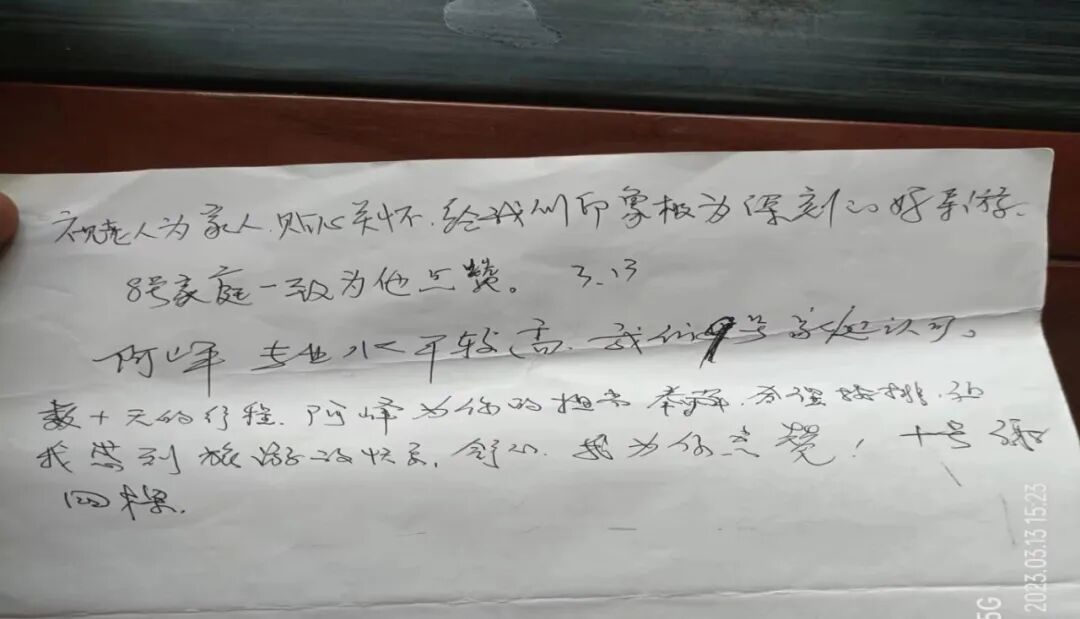 视老人为家人.贴心关怀.给我们印象极为深刻的好导游.
8号家庭一致为他点赞。 3.13
阿峰 专业水平较高.我们9号家庭认可。
数十天的行程.阿峰为你的担当 合理安排.让
我感到旅游的快乐,舒心.我为你点赞! 十号
四
2023.03.13 15:23
5G